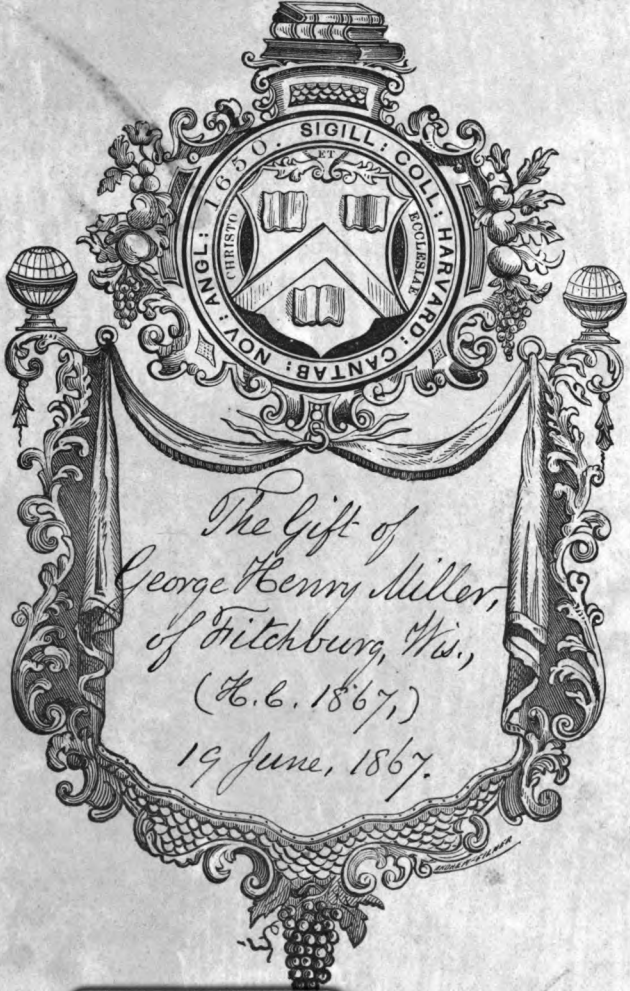 SIGILL: COLL: HARVARD: CANTAB: NOV: ANGL: 1650.
ET
CHRISTO
ECCLESIAE
The Gift of
George Henry Miller,
of Fitchburg, Wis.,
(H.C. 1867,)
19 June, 1867.